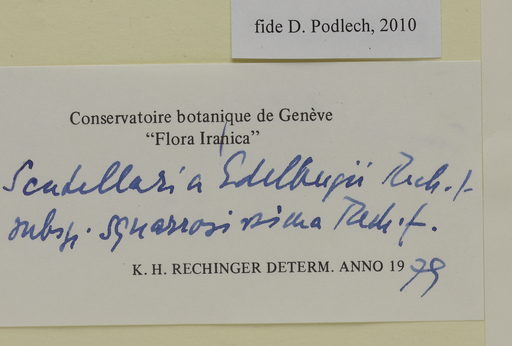 fide D. Podlech, 2010
Conservatoire botanique de Genève
“Flora Iranica”
Scutellaria Edelbergii Rech. f.
subsp. squarrosissima Rech. f.
K. H. RECHINGER DETERM. ANNO 1979